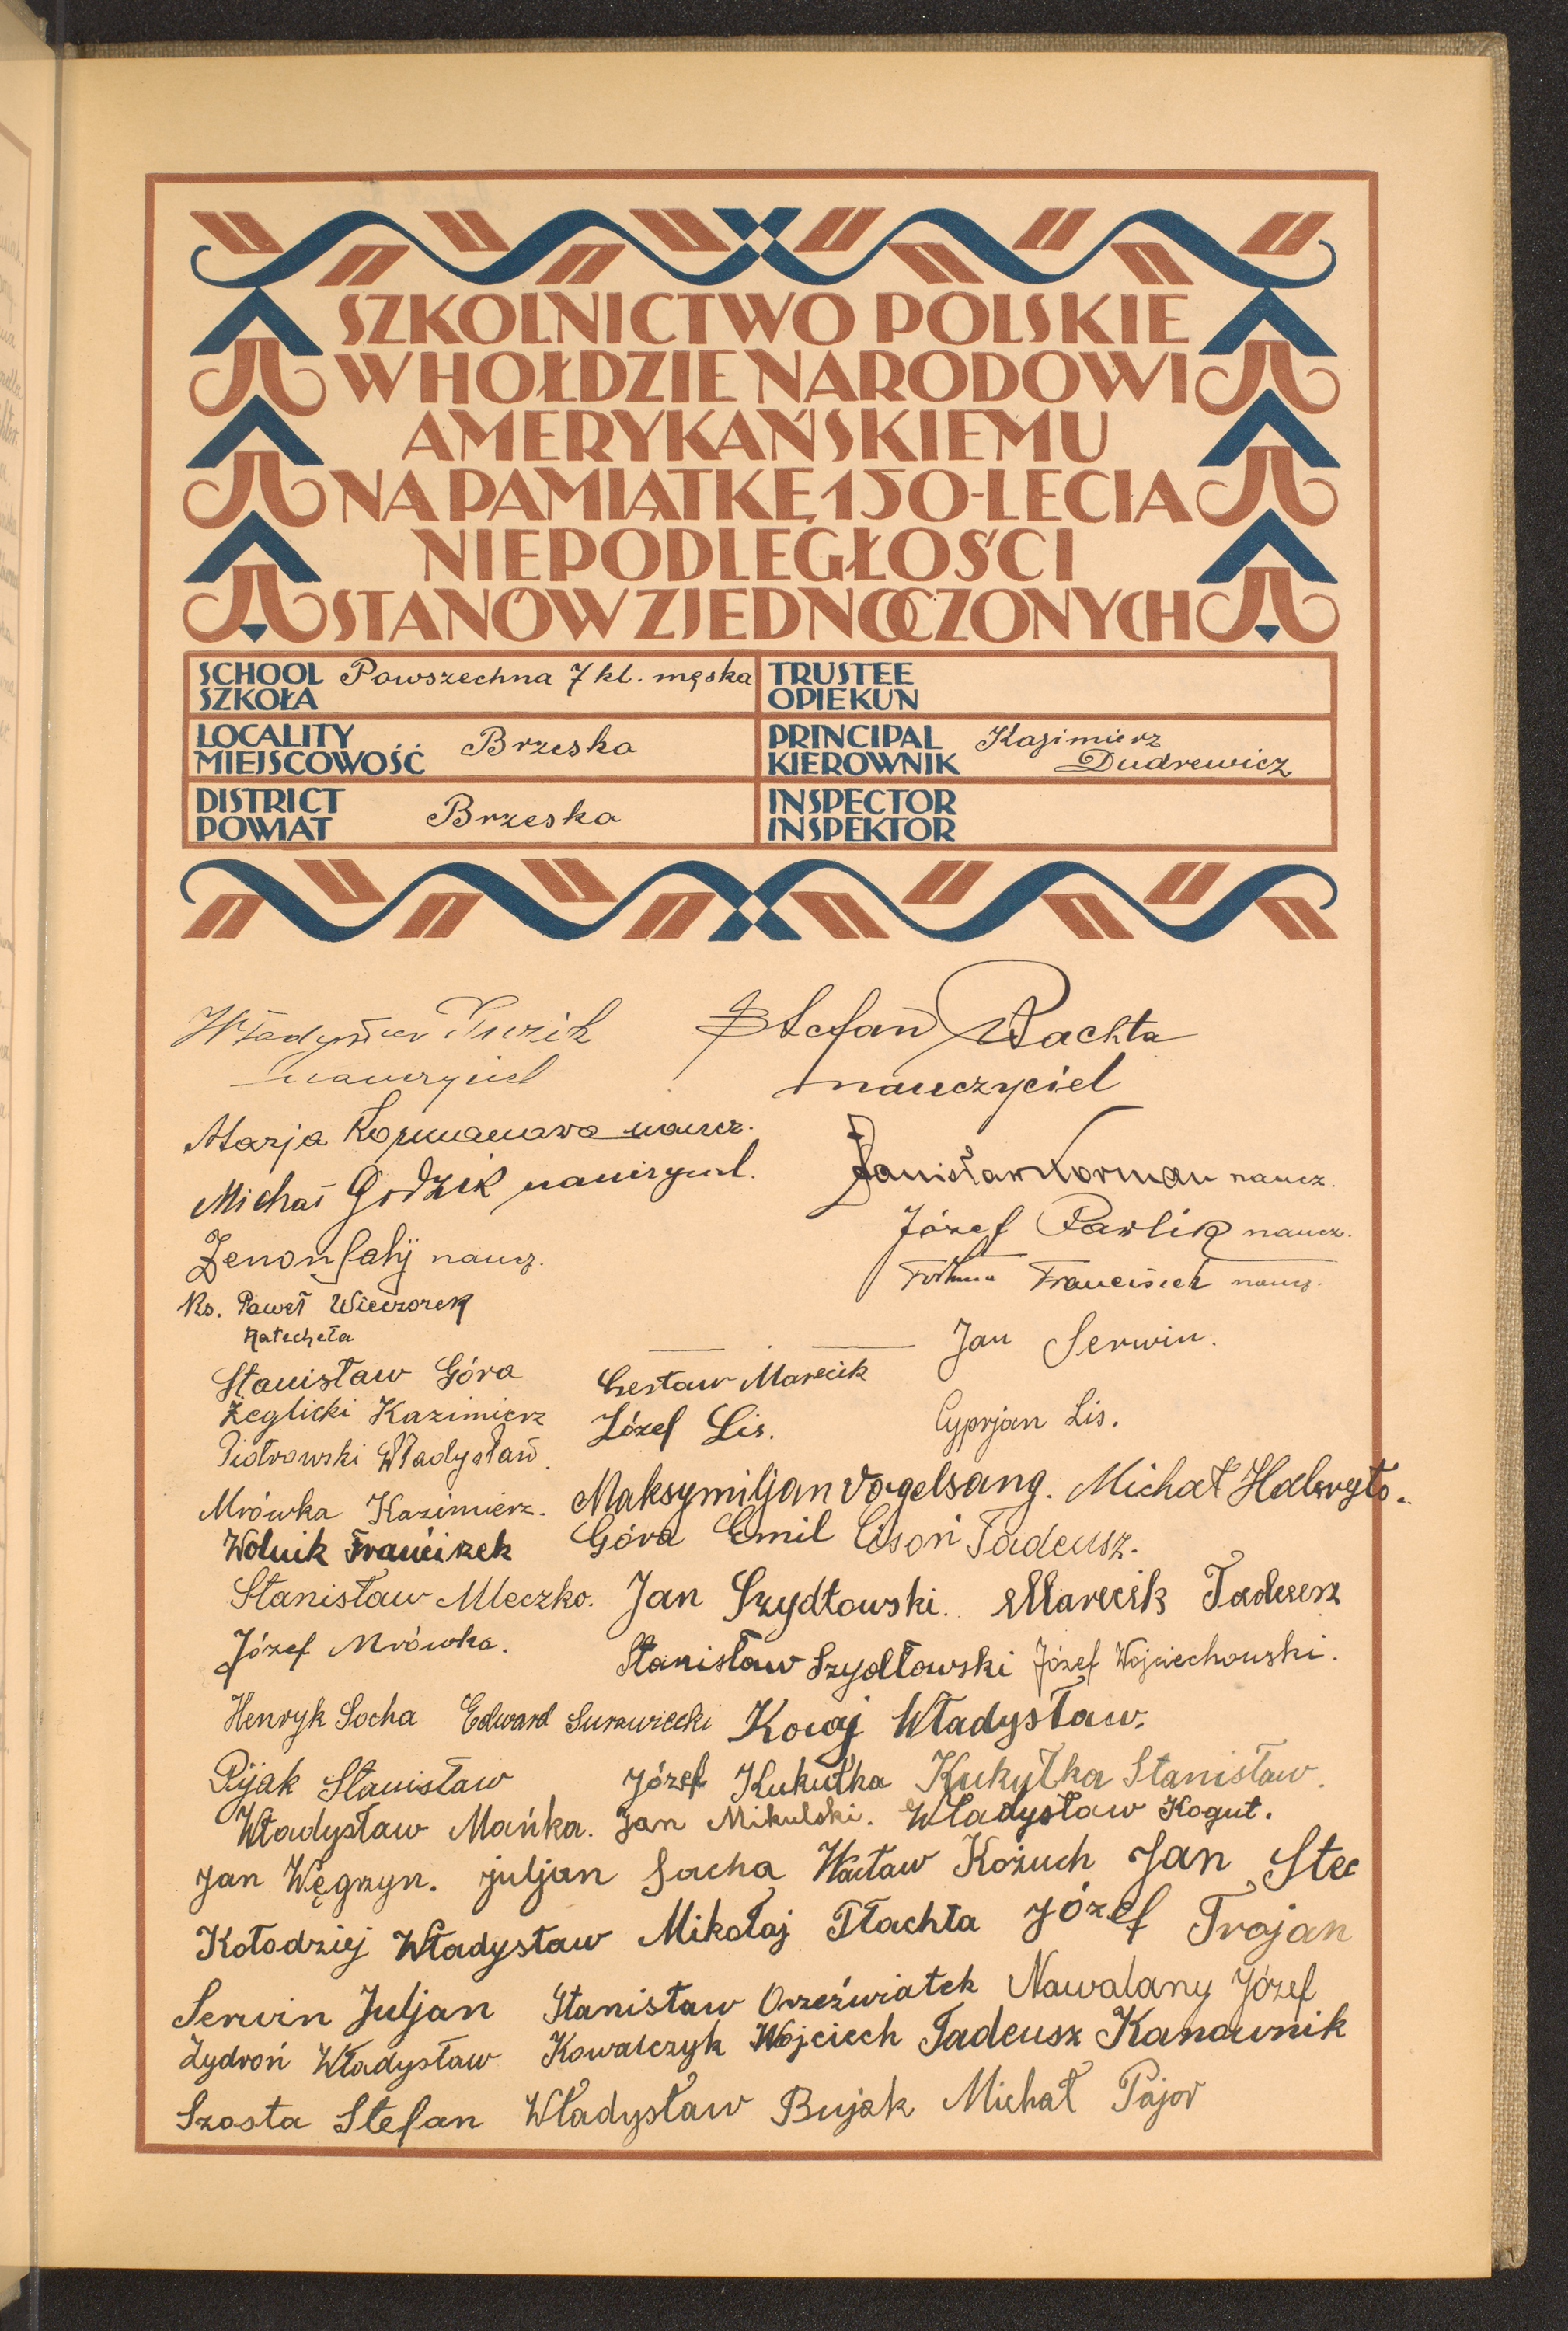 SZKOLNICTWO POLSKIE
W HOŁDZIE NARODOWI
AMERYKAŃSKIEMU
NA PAMIĄTKĘ 150-LECIA
NIEPODLEGŁOŚCI
STANÓW ZJEDNOCZONYCH
SCHOOL SZKOŁA Powszechna 7 kl. męska
TRUSTEE OPIEKUN
LOCALITY MIEJSCOWOŚĆ Brzesko
PRINCIPAL KIEROWNIK Kazimierz Dudrewicz
DISTRICT POWIAT Brzesko
INSPECTOR INSPEKTOR
Stefan Bachta
nauczyciel
nauczyciel
Marja Kormanowa naucz.
Michał Godzik nauczyciel.
Stanisław Korman naucz.
Józef Pawlik naucz.
Zenon naucz.
Franciszek naucz.
Ks. Paweł Wieczorek
Katecheta
Jan Serwin.
Stanisław Góra Czesław Marecik
Żeglicki Kazimierz Józef Lis. Cyprjan Lis.
Piotrowski Władysław.
Mrówka Kazimierz. Maksymiljan Vogelsang. Michał Haberyło.
Wolnik Franciszek Góra Emil Cisoń Tadeusz.
Stanisław Mleczko. Jan Szydłowski. Marecik Tadeusz
Józef Mrówka. Stanisław Szydłowski Józef Wojciechowski.
Henryk Socha Edward Surowiecki Kowaj Władysław.
Pijak Stanisław Józef Kukułka Kukułka Stanisław.
Władysław Mańka. Jan Mikulski. Władysław Kogut.
Jan Węgrzyn. juljan Socha Wacław Kożuch Jan Stec
Kołodziej Władysław Mikołaj Tłachta Józef Trojan
Serwin Juljan Stanisław Orzeźwiatek Nawalany Józef
Żydroń Władysław Kowalczyk Wojciech Tadeusz Kanownik
Szosta Stefan Władysław Bujak Michał Pajor